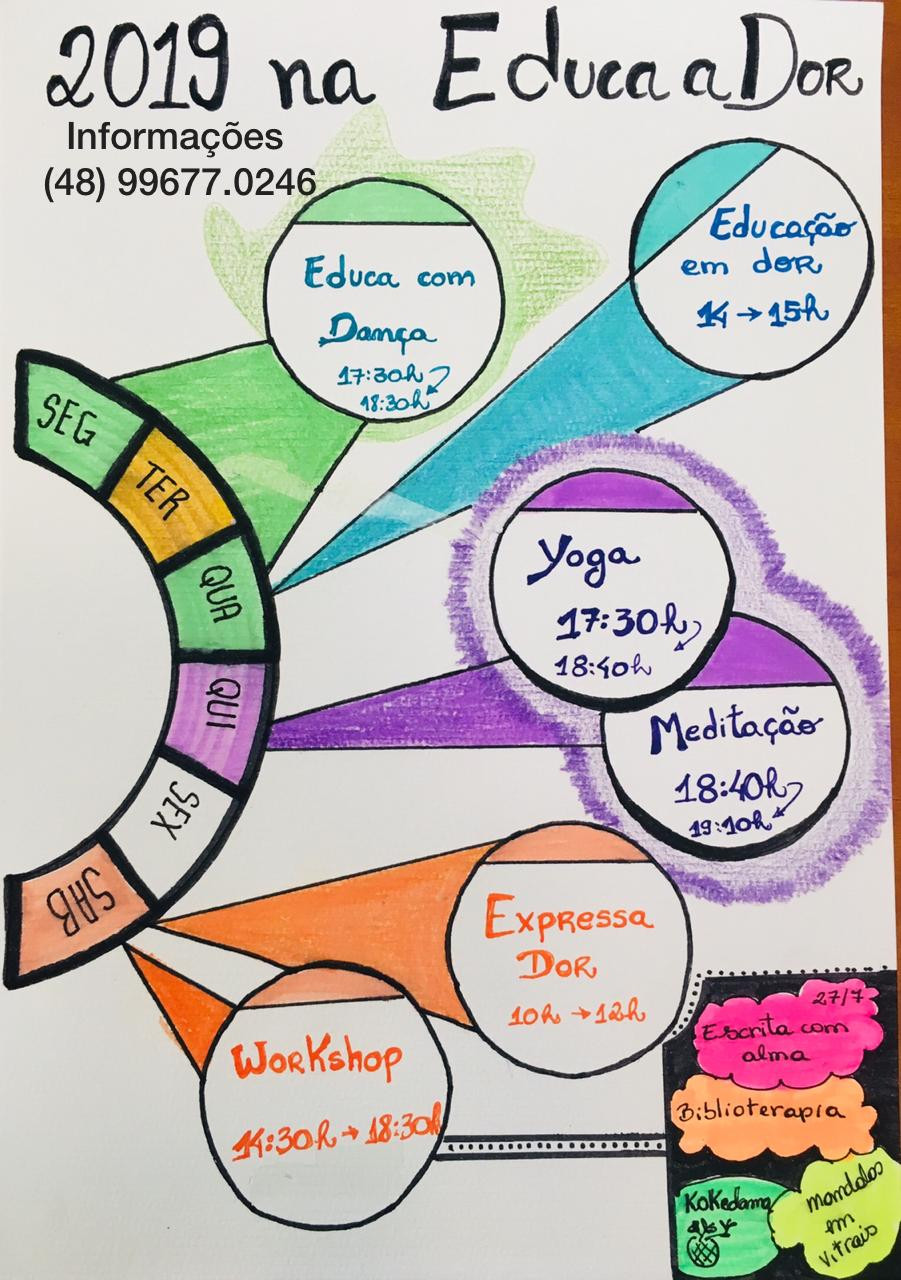 2019 na Educa a Dor
Informações
(48) 99677.0246
Educa com
Dança
17:30h
18:30h
Educação
em dor
14 → 15h
SEG
TER
QUA
QUI
SEX
SAB
Yoga
17:30h
18:40h
Meditação
18:40h
19:10h
Expressa
Dor
10h → 12h
Workshop
14:30h → 18:30h
27/7
Escrita com
alma
Biblioterapia
Kokedama
mandalas
em
vitrais